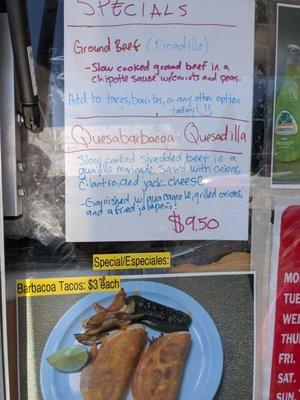 SPECIALS
Ground Beef (Picadillo)
- Slow cooked ground beef in a
chipotle sauce w/carrots and peas.
Add to tacos, burritos, or any other option
today!!
Quesabarbacoa Quesadilla
Slow cooked shredded beef in a
guajillo marinade. Served with onions,
cilantro, and jack cheese.
- Garnished w/guacamole, grilled onions,
and a fried jalapeño!
$9.50
Special/Especiales:
Barbacoa Tacos: $3 each
MO
TUE
WED
THU
FRI.
SAT.
SUN.